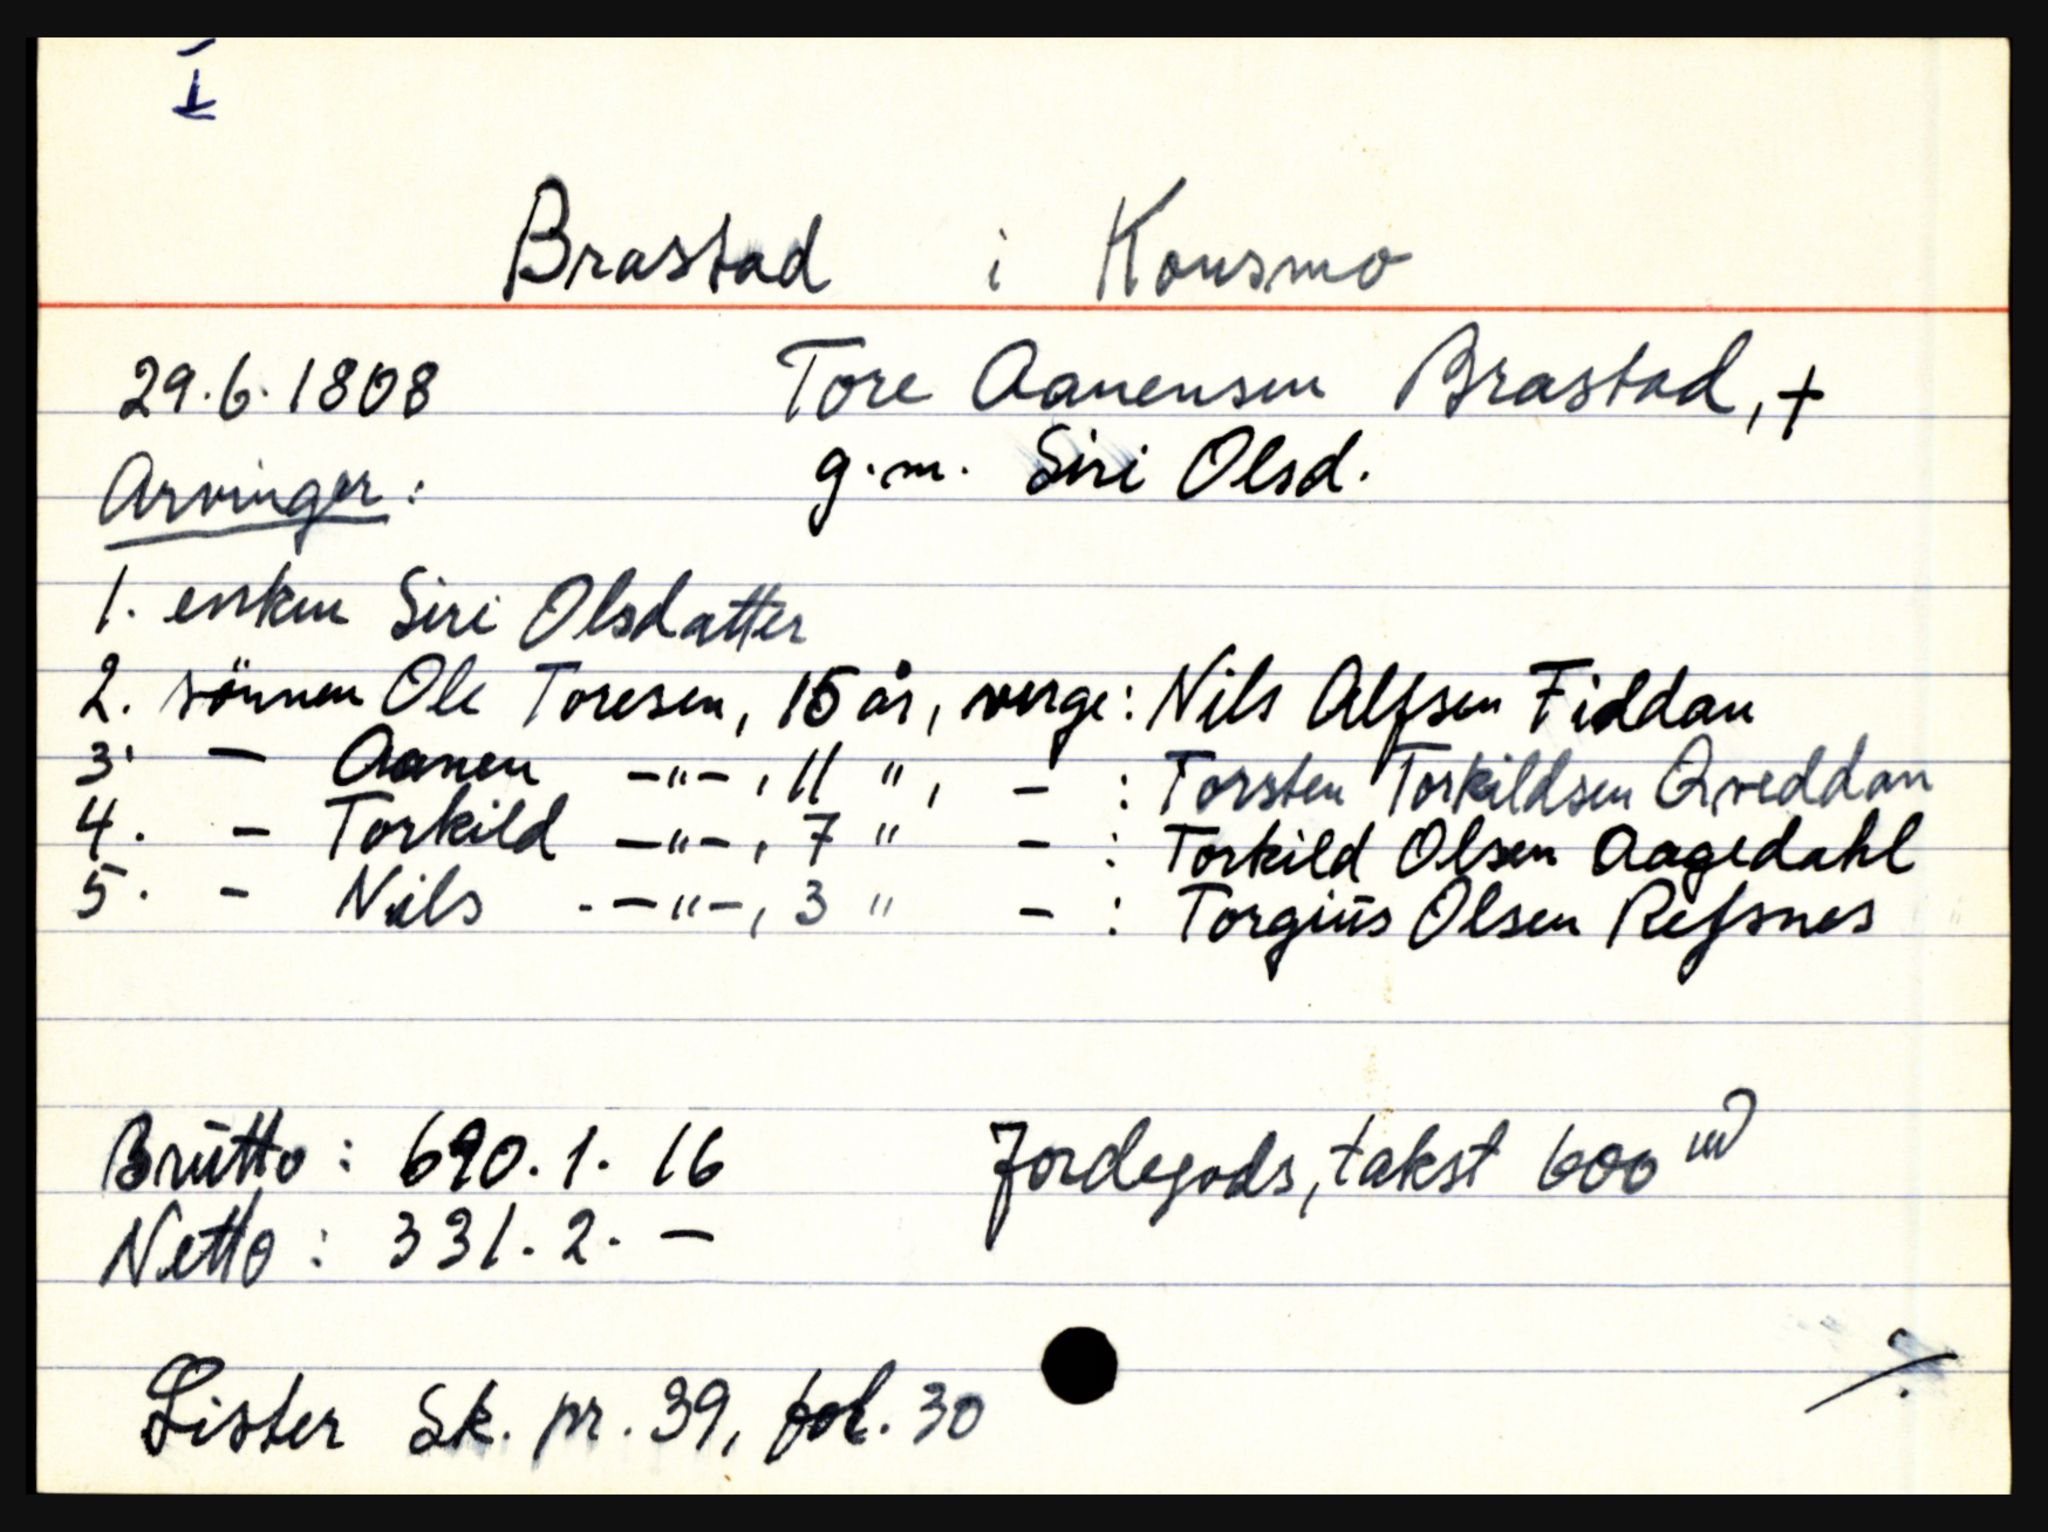 I
Brastad i Konsmo
29.6.1808 Tore Aanensen Brastad, +
Arvinger: g.m. Siri Olsd.
1. enken Siri Olsdatter
2. sönnen Ole Toresen, 15 år, verge: Nils Alfsen Fiddan
3. - Aanen -"-, 11 ", - : Torsten Torkildsen Qveddan
4. - Torkild -"-, 7 " - : Torkild Olsen Aagedahl
5. - Nils -"-, 3 " - : Torgius Olsen Refsnes
Brutto: 690.1.16 Jordegods, takst 600
Netto: 331.2.-
Lister Sk. pr. 39, fol. 30